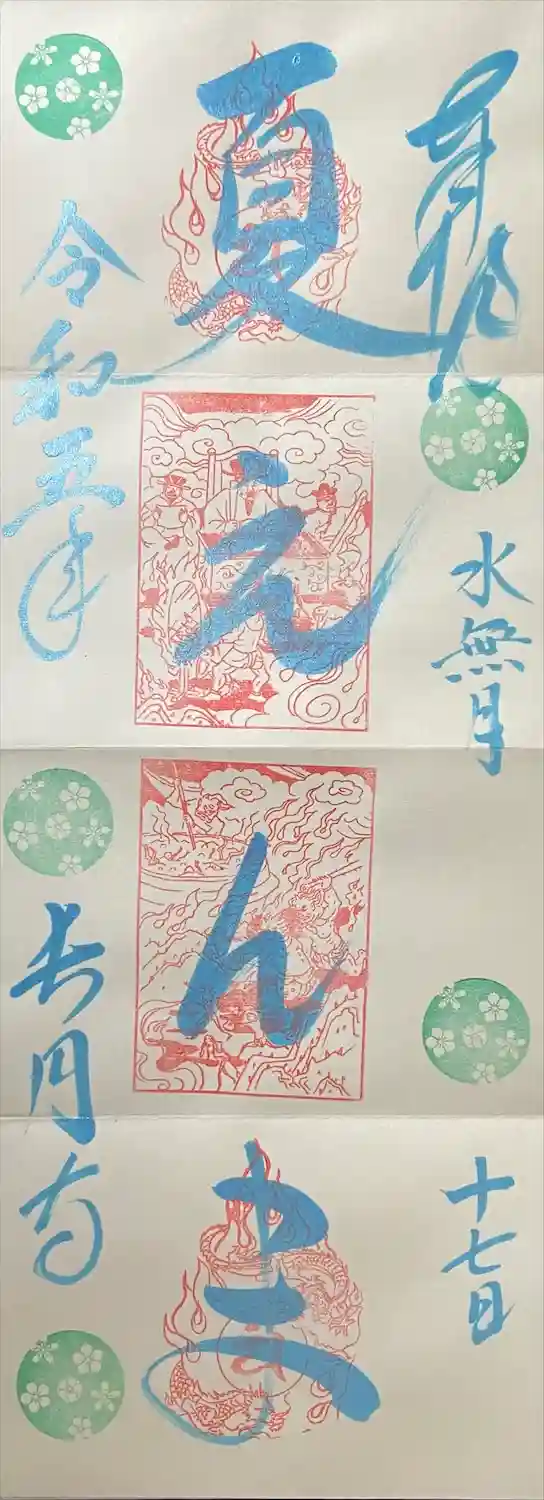 奉拝
水無月
十七日
夏えんま
令和五年
長円寺